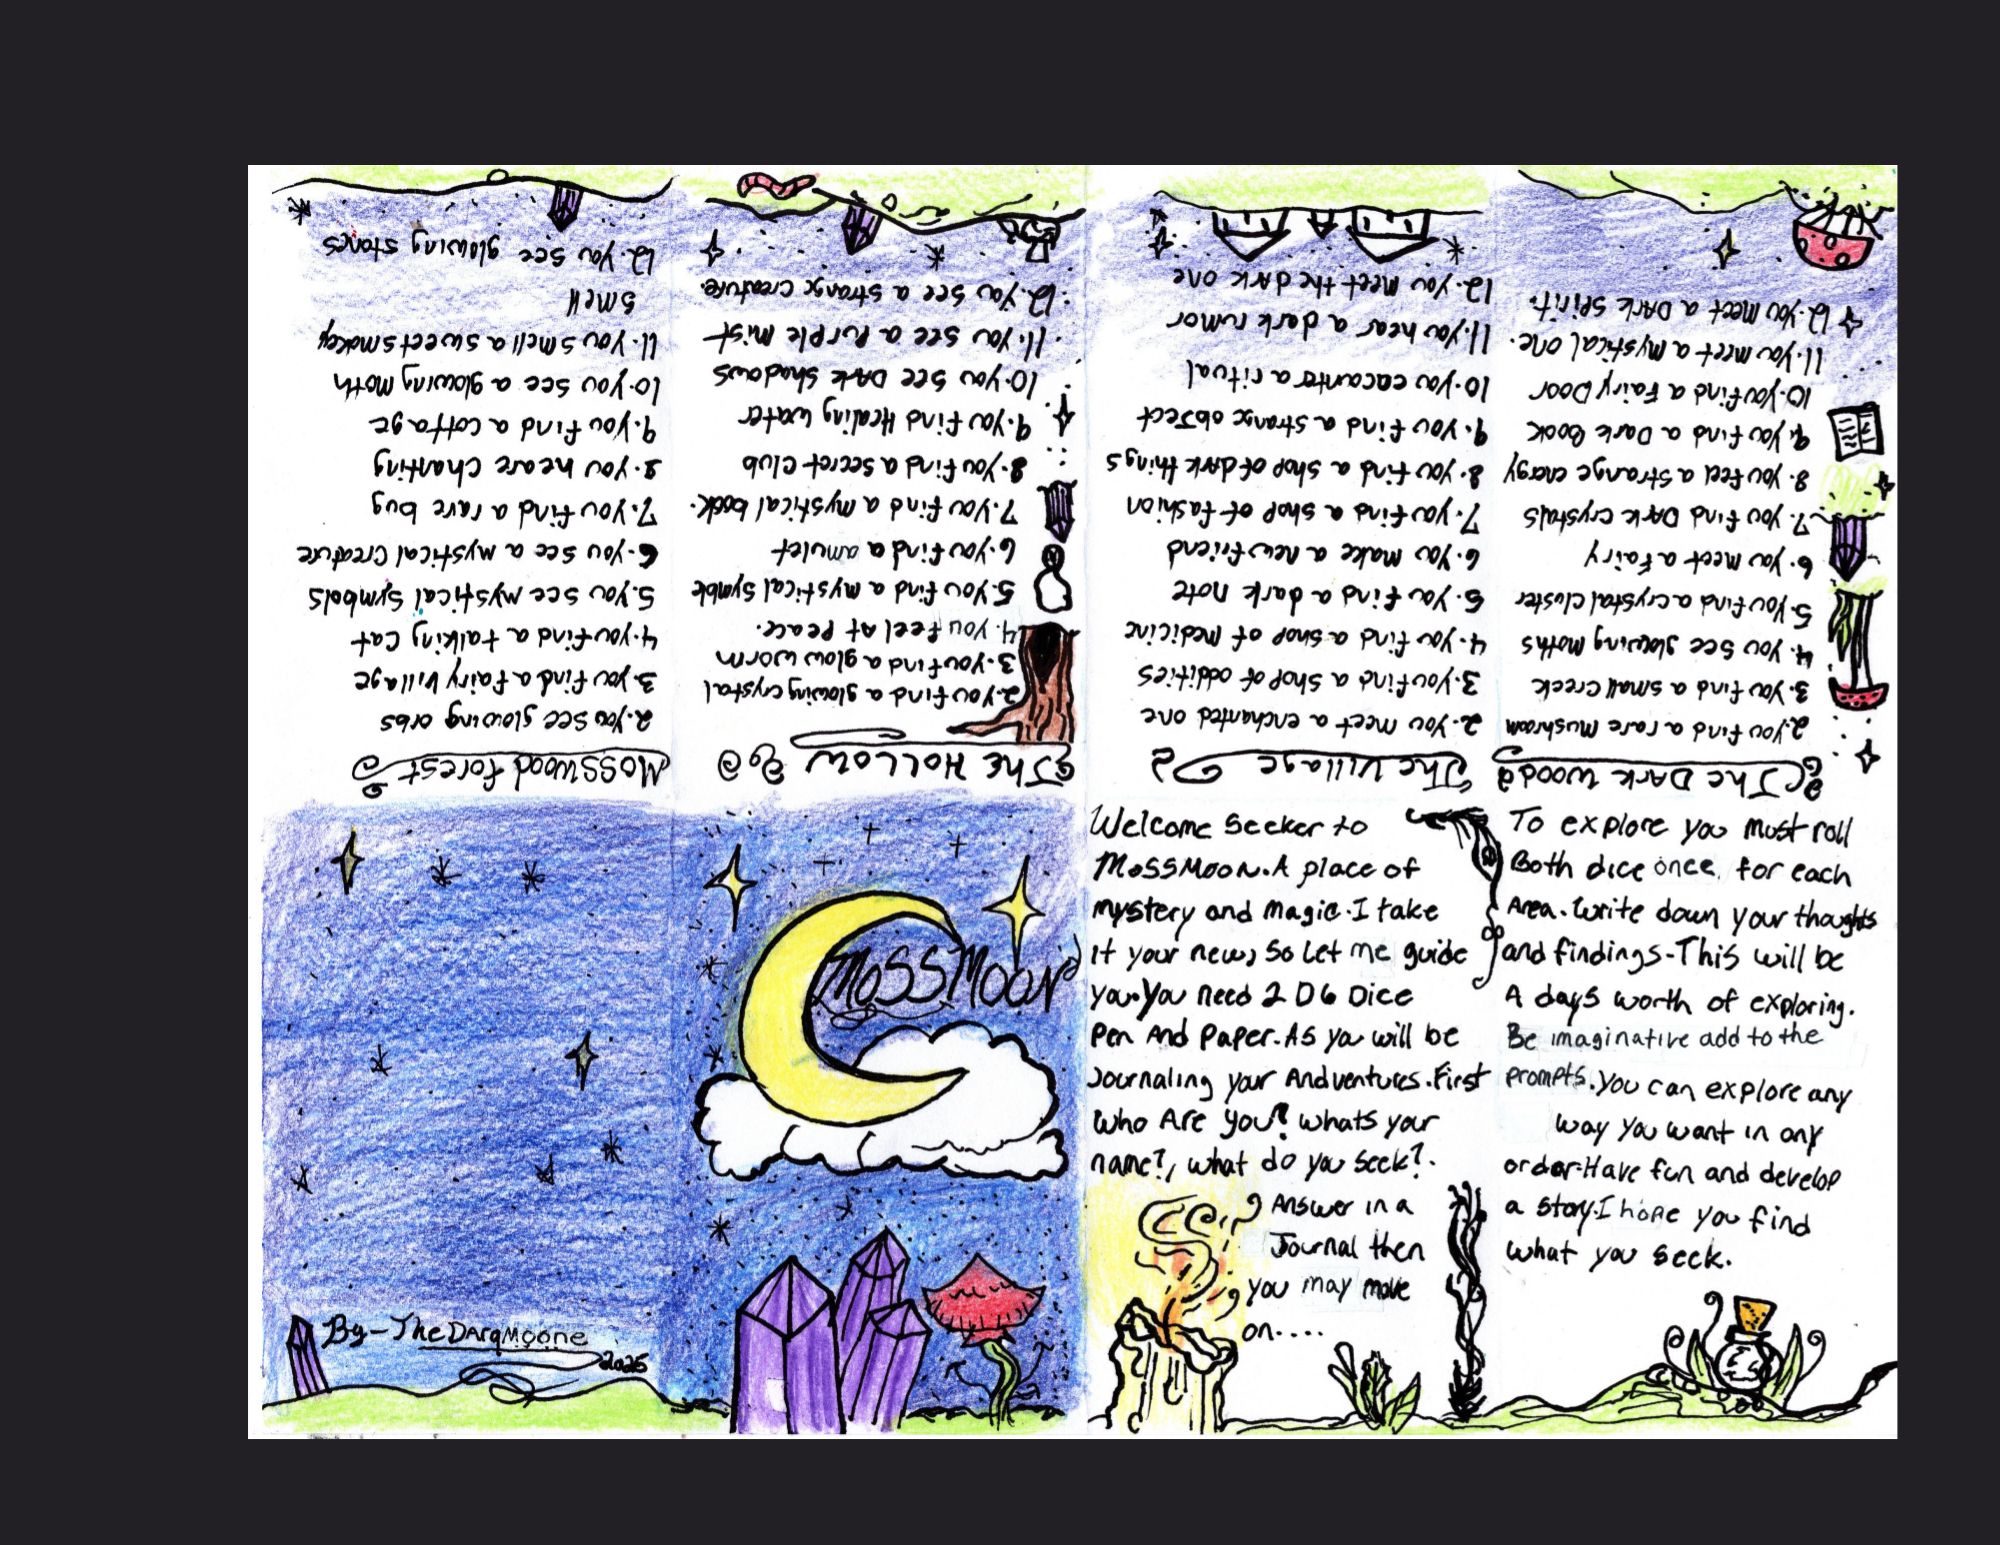 MossMoon
Welcome Seeker to
MossMoon. A place of
mystery and magic. I take
it your new, so Let me guide
you. You need 2 D6 Dice
Pen And Paper. As you will be
Journaling your Andventures. First
Who Are you? whats your
name?, what do you seek?.
Answer in a
Journal then
you may move
on....
To explore you must roll
Both dice once, for each
Area. Write down your thoughts
and findings-This will be
A days worth of exploring.
Be imaginative add to the
prompts. you can explore any
way you want in any
order. Have fun and develop
a story. I hope you find
what you seek.
The DARK Woods
2. you find a rare mushroom
3. you find a small creek
4. you see glowing moths
5. you find a crystal cluster
6. you meet a fairy
7. you find DARK crystals
8. you feel a strange energy
9. you find a Dark Book
10. you find a Fairy Door
11. you meet a mystical one.
12. you meet a DARK spirit.
The Village
2. you meet a enchanted one
3. you find a shop of oddities
4. you find a shop of medicine
5. you find a dark note
6. you make a new friend
7. you find a shop of fashion
8. you find a shop of dark things
9. you find a strange object
10. you encounter a ritual
11. you hear a dark rumor
12. you meet the dark one
The HOLLOW
2. you find a glowing crystal
3. you find a glow worm
4. you feel At Peace.
5. you find a mystical Symble
6. you find a amulet
7. you find a mystical book.
8. you find a secret Club
9. you find Healing water
10. you see DARK shadows
11. you see a Purple mist
12. you see a strange creature.
MossWood forest
2. you see glowing orbs
3. you find a fairy village
4. you find a talking Cat
5. you see mystical symbols
6. you see a mystical Creature
7. you find a rare bug
8. you heare Chanting
9. you find a cottage
10. you see a glowing Moth
11. you smell a sweet smokey
smell
12. you see glowing stones
By-TheDarqMoone
2025